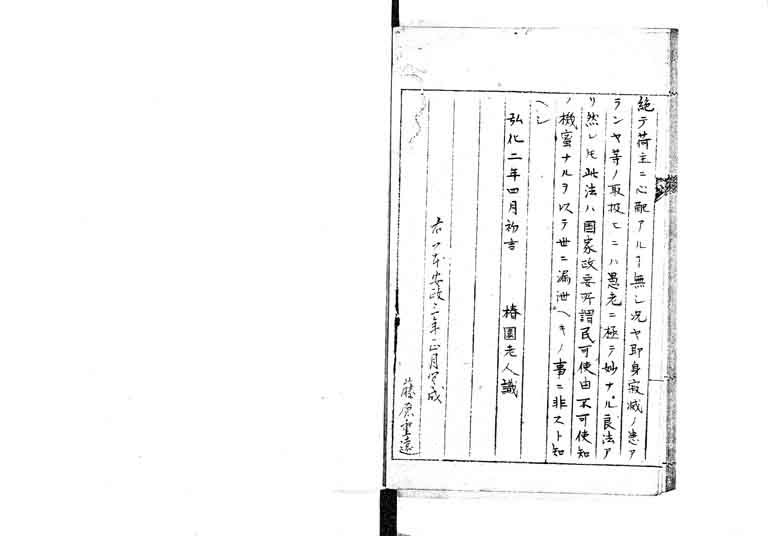 絶テ荷主ニ心配アルヿ無シ况ヤ即身寂滅ノ患ア
ランヤ等ノ取扱ヒニハ愚老ニ極テ妙ナル良法ア
リ然レㇳモ此法ハ国家政要所謂民可使由不可使知
ノ機蜜ナルヲ以テ世ニ漏泄ヘキノ事ニ非スト知
ヘシ
弘化二年四月初吉 椿園老人識
右写本安政三年正月写成
藤原重遠